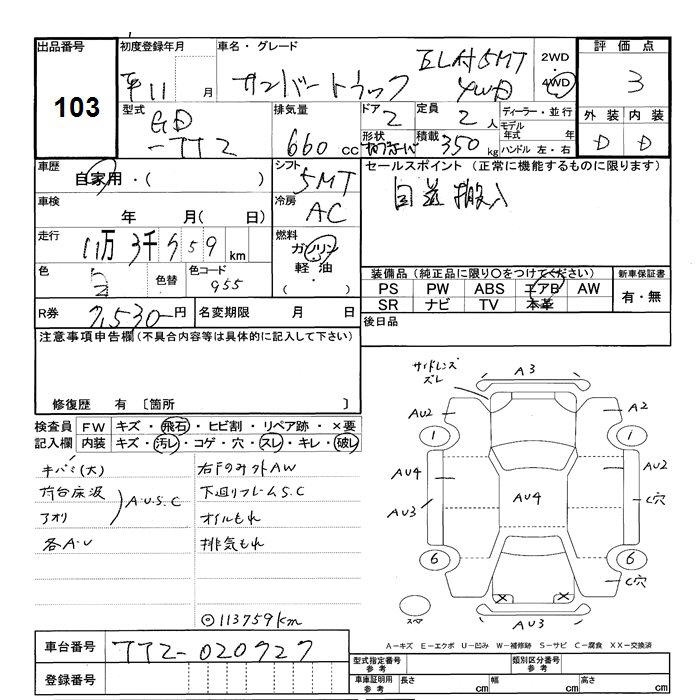 出品番号
103
初度登録年月
平 11 月
車名・グレード
サンバートラック
ELA付5MT
4WD
2WD
4WD
評価点
3
外装 内装
D D
型式
GD
-TT2
排気量
660 cc
ドア 2
形状
定員 2 人
積載 350 kg
ディーラー・並行
モデル年式 年
ハンドル 左・右
車歴
自家用・( )
シフト
5MT
セールスポイント(正常に機能するものに限ります)
自送搬入
車検
年 月( 日)
冷房
AC
走行
11万 3千 759 km
燃料
ガソリン
軽油
( ・ )
色
色替
色コード
955
装備品(純正品に限り○をつけてください)
PS PW ABS エアB AW
SR ナビ TV 本革
新車保証書
有・無
R券
7,530-円
名変期限 月 日
後日品
注意事項申告欄(不具合内容等は具体的に記入して下さい)
修復歴 有 〔箇所 〕
検査員記入欄
FW キズ・飛石・ヒビ割・リペア跡・×要
内装 キズ・汚レ・コゲ・穴・スレ・キレ・破レ
キバミ(大)
荷台床波
アオリ
A・U・S・C
各A・U
右Fのみ外AW
下廻りフレームS.C
オイルもれ
排気もれ
◎113759km
サイドレンズ
ズレ
A3
AU2
A2
1
1
AU4
AU2
AU4
AU3
C穴
6
6
C穴
× ×
AU3
スペア
A−キズ E−エクボ U−凹み W−補修跡 S−サビ C−腐食 XX−交換済
車台番号
TT2-020727
登録番号
型式指定番号
参考
類別区分番号
参考
車庫証明用
参考
長さ cm 幅 cm 高さ cm